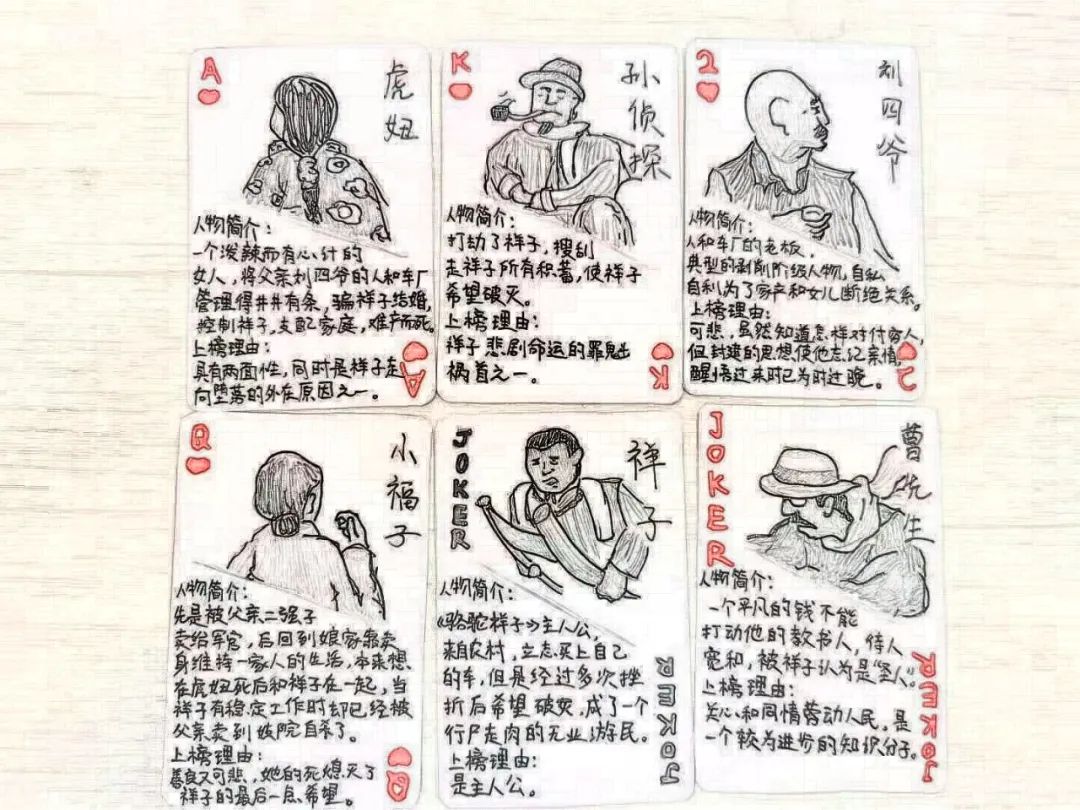 A
虎妞
人物简介:
一个泼辣而有心计的
女人,将父亲刘四爷的人和车厂
管理得井井有条,骗祥子结婚,
控制祥子,支配家庭,难产而死。
上榜理由:
具有两面性,同时是祥子走
向堕落的外在原因之一。
A
K
孙侦探
人物简介:
打劫了祥子,搜刮
走祥子所有积蓄,使祥子
希望破灭。
上榜理由:
祥子悲剧命运的罪魁
祸首之一。
K
2
刘四爷
人物简介:
人和车厂的老板,
典型的剥削阶级人物,自私
自利为了家产和女儿断绝关系。
上榜理由:
可悲,虽然知道怎样对付穷人,
但封建的思想使他忘记亲情,
醒悟过来时已为时过晚。
2
Q
小福子
人物简介:
先是被父亲二强子
卖给军官,后回到娘家靠卖
身维持一家人的生活,本来想
在虎妞死后和祥子在一起,当
祥子有稳定工作时却已经被
父亲卖到妓院自杀了。
上榜理由:
善良又可悲,她的死熄灭了
祥子的最后一点希望。
Q
JOKER
祥子
人物简介:
《骆驼祥子》主人公,
来自农村,立志买上自己
的车,但是经过多次挫
折后希望破灭,成了一个
行尸走肉的无业游民。
上榜理由:
是主人公。
JOKER
JOKER
曹先生
人物简介:
一个平凡的钱不能
打动他的教书人,待人
宽和,被祥子认为是“圣人”。
上榜理由:
关心和同情劳动人民,是
一个较为进步的知识分子。
JOKER